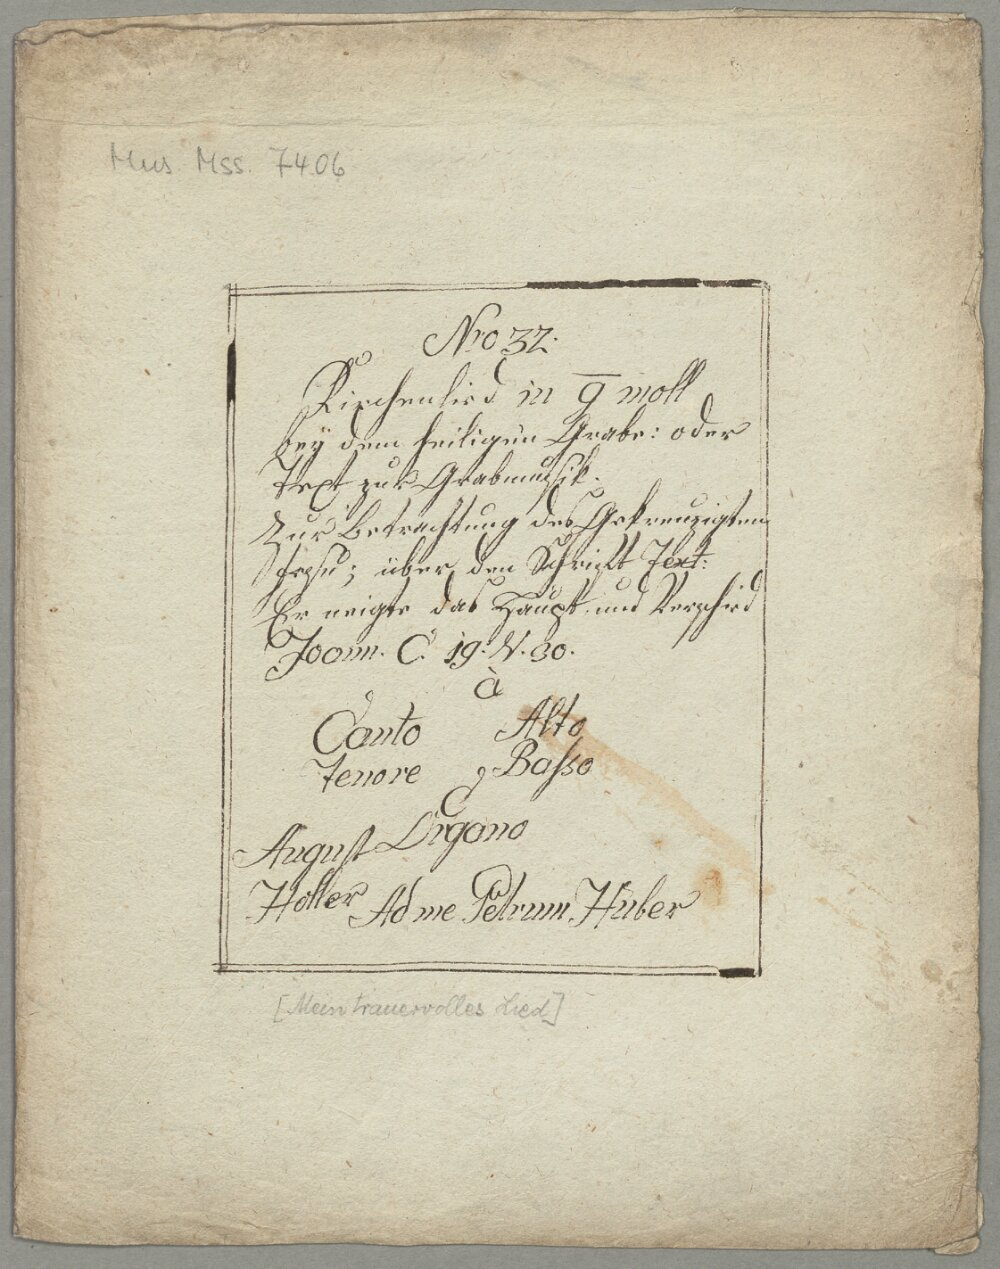 Mus. Mss. 7406
Nro 32.
Kirchenlied in g moll
beÿ dem heiligen Grabe: oder
Text zur Grabmusik.
Zur Betrachtung des Gekreuzigten
Jesu; über den Schrift Text:
Er neigte das Haupt und Verschied
Joann. C. 19. V. 30.
à
Canto Alto
Tenore Basso
e
Organo
August
Holler Ad me Petrum Huber
[Mein trauervolles Lied]